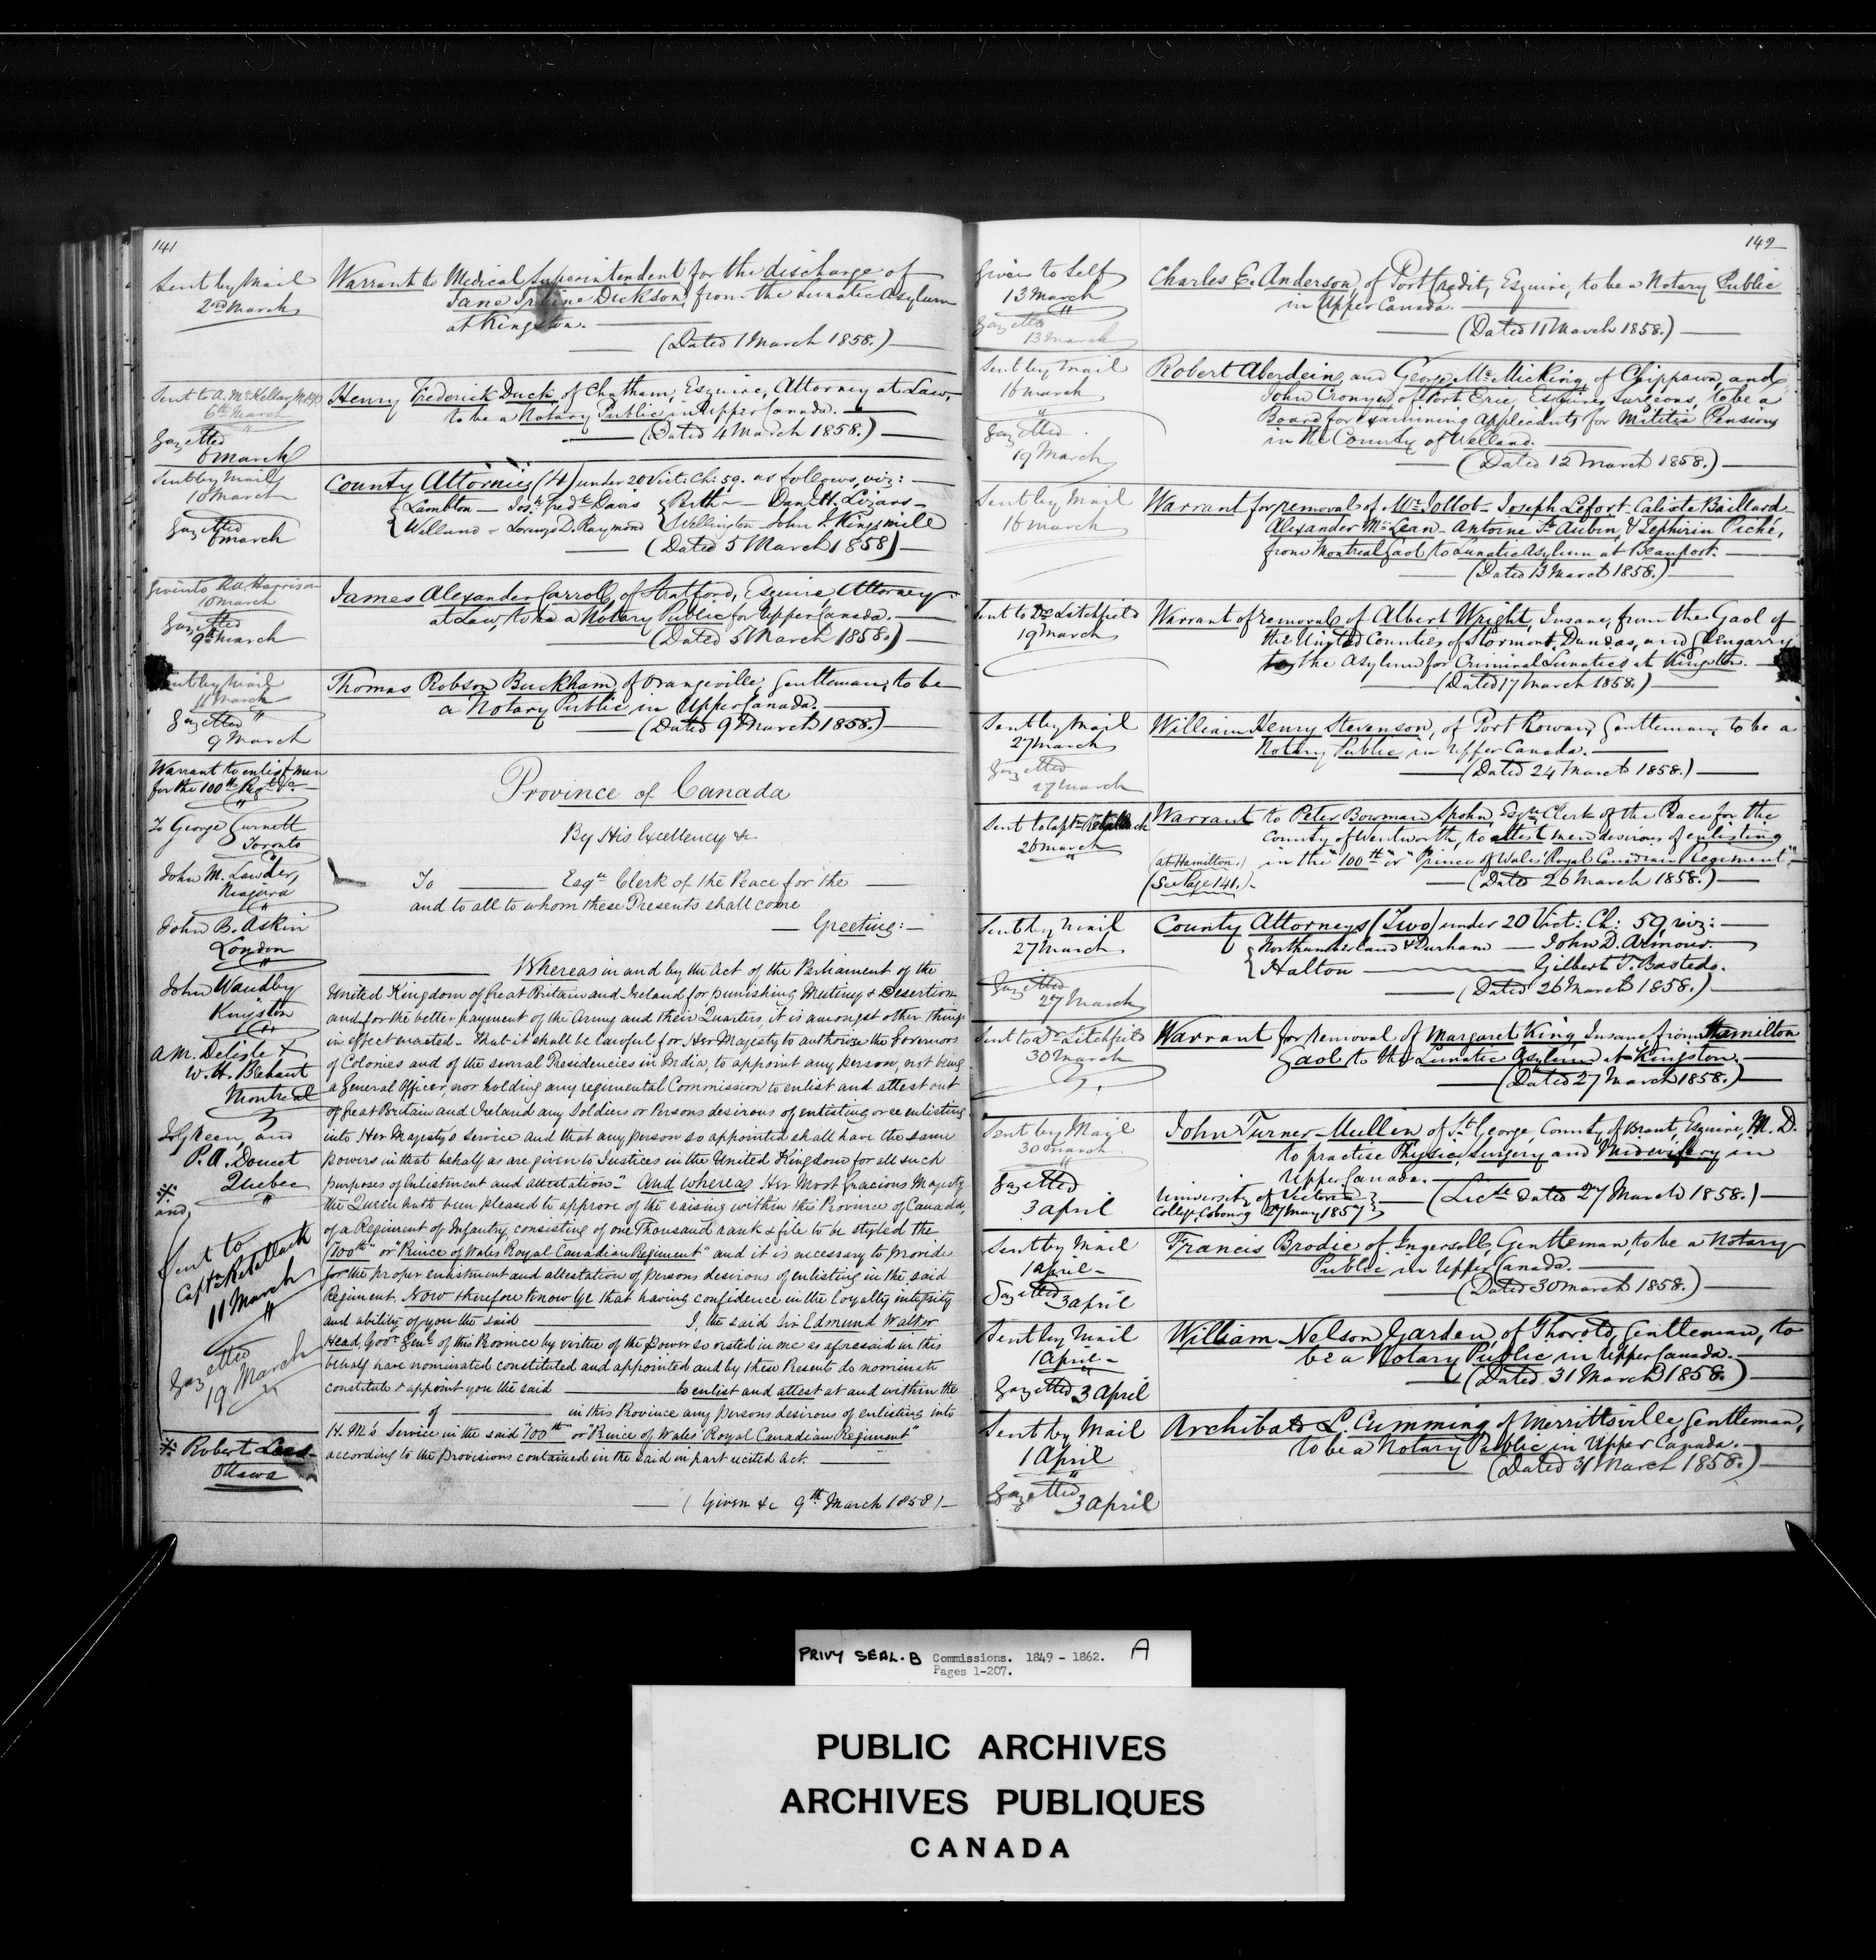 141
Sent by Mail
2nd March
Warrant to Medical Superintendent for the discharge of
Jane Dickson, from the Lunatic Asylum
at Kingston.
(Dated 1 March 1858.)
Sent to A. McKellar M.P.P.
6th March
"
Gazetted
6 March
Henry Frederick Duck, of Chatham, Esquire, Attorney at Law,
to be a Notary Public in Upper Canada.
(Dated 4 March 1858.)
Sent by Mail
10 March
Gazetted
6 March
County Attornies (4) under 20 Vict: Ch: 59. as follows, viz:
Lambton — Josh. Fredk. Davis Perth — Danl. H. Lizars
Welland — Lorenzo D. Raymond Wellington — John J. Kingsmill
(Dated 5 March 1858)
Given to R.A. Harrison
10 March
Gazetted
9th March
James Alexander Carroll, of Stratford, Esquire, Attorney
at Law, to be a Notary Public for Upper Canada.
(Dated 5 March 1858.)
Sent by Mail
11 March
"
Gazetted
9 March
Thomas Robson Buckham, of Orangeville, Gentleman, to be
a Notary Public, in Upper Canada.
(Dated 9 March 1858.)
Warrant to enlist men
for the 100th Regt. &c
"
To George Gurnett
Toronto
"
John M. Lawder,
Niagara
"
John B. Askin
London
"
John Waudby
Kingston
"
A.M. Delisle &
W.H. Brehaut
Montreal
J. Green, and
P.A. Doucet
Quebec
"
and,
Sent to
Captn. Retallack
11 March
"
Gazetted
19 March
Robert Lees
Ottawa
Province of Canada
By His Excellency &c
To ______ Esqre. Clerk of the Peace for the ____
and to all to whom these Presents shall come
Greeting:—
Whereas in and by the Act of the Parliament of the
United Kingdom of Great Britain and Ireland for punishing Mutiny & Desertion
and for the better payment of the Army and their Quarters, it is amongst other things
in effect enacted — That it shall be lawful for Her Majesty to authorize the Governors
of Colonies and of the several Presidencies in India, to appoint any person, not being
a General Officer, nor holding any regimental Commission to enlist and attest out
of Great Britain and Ireland any Soldiers or Persons desirous of enlisting or re enlisting
into Her Majesty's Service and that any person so appointed shall have the same
powers in that behalf as are given to Justices in the United Kingdom for all such
purposes of Enlistment and attestation." And whereas Her Most Gracious Majesty
the Queen hath been pleased to approve of the raising within this Province of Canada,
of a Regiment of Infantry, consisting of one Thousand rank & file to be styled the
"100th" or "Prince of Wales Royal Canadian Regiment" and it is necessary to provide
for the proper enlistment and attestation of persons desirous of enlisting in the said
Regiment. Now therefore know ye that having confidence in the loyalty integrity
and ability of you the said ______ I, the said Sir Edmund Walker
Head, Govr. Genl. of this Province by virtue of the power so vested in me as aforesaid in this
behalf have nominated constituted and appointed and by these Presents do nominate
constitute & appoint you the said ______ to enlist and attest at and within the
______ of ______ in this Province any persons desirous of enlisting into
H.M's. Service in the said "100th" or "Prince of Wales' Royal Canadian Regiment"
according to the provisions contained in the said in part recited Act.
(Given &c 9th March 1858)
142
Given to Self
13 March
"
Gazetted
13 March
Charles E. Anderson, of Port Credit, Esquire, to be a Notary Public
in Upper Canada.
(Dated 11 March 1858.)
Sent by Mail
16 March
"
Gazetted
19 March
Robert Aberdein, and George McMicking of Chippawa, and
John Cronyn, of Port Erie, Esquires, Surgeons, to be a
Board for examining Applicants for Militia Pensions
in the County of Welland.
(Dated 12 March 1858.)
Sent by Mail
16 March
Warrant for removal of Joseph Lefort Calixte Baillard
Alexander McLean. Antoine St. Aubin, & Zephirin Piché,
from Montreal Gaol to Lunatic Asylum at Beauport.
(Dated 13 March 1858.)
Sent to Dr. Litchfield
19 March
Warrant of removal of Albert Wright, Insane, from the Gaol of
the United Counties of Stormont, Dundas, and Glengarry
to the Asylum for Criminal Lunatics at Kingston.
(Dated 17 March 1858.)
Sent by Mail
27 March
Gazetted
27 March
William Henry Stevenson, of Port Rowan, Gentleman, to be a
Notary Public in Upper Canada.
(Dated 24 March 1858.)
Sent to Captn. Retallack
26 March
"
Warrant to Peter Bowman Spohn, Esqre. Clerk of the Peace for the
County of Wentworth, to attest men desirous of enlisting
(at Hamilton.) in the "100th" or "Prince of Wales' Royal Canadian Regiment".
(See Page 141.)
(Dated 26 March 1858.)
Sent by Mail
27 March
Gazetted
27 March
County Attorneys (Two) under 20 Vict: Ch: 59, viz:
Northumberland & Durham — John D. Armour.
Halton — Gilbert T. Bastedo.
(Dated 26 March 1858.)
Sent to Dr. Litchfield
30 March
Warrant for removal of Margaret King, Insane, from Hamilton
Gaol to the Lunatic Asylum at Kingston.
(Dated 27 March 1858.)
Sent by Mail
30 March
"
Gazetted
3 April
John Turner Mullin of St. George, County of Brant, Esquire, M.D.
to practise Physic, Surgery and Midwifery in
Upper Canada.
University of Victoria
College, Cobourg 27 May 1857
(Lice. dated 27 March 1858.)
Sent by Mail
1 April
Gazetted 3 April
Francis Brodie of Ingersoll, Gentleman, to be a Notary
Public in Upper Canada.
(Dated 30 March 1858.)
Sent by Mail
1 April
Gazetted 3 April
William Nelson Garden, of Thorold, Gentleman, to
be a Notary Public in Upper Canada.
(Dated 31 March 1858.)
Sent by Mail
1 April
"
Gazetted
3 April
Archibald L. Cumming of Merrittsville, Gentleman,
to be a Notary Public in Upper Canada.
(Dated 31 March 1858.)
PRIVY SEAL. B Commissions. 1849 - 1862. A
Pages 1-207.
PUBLIC ARCHIVES
ARCHIVES PUBLIQUES
CANADA